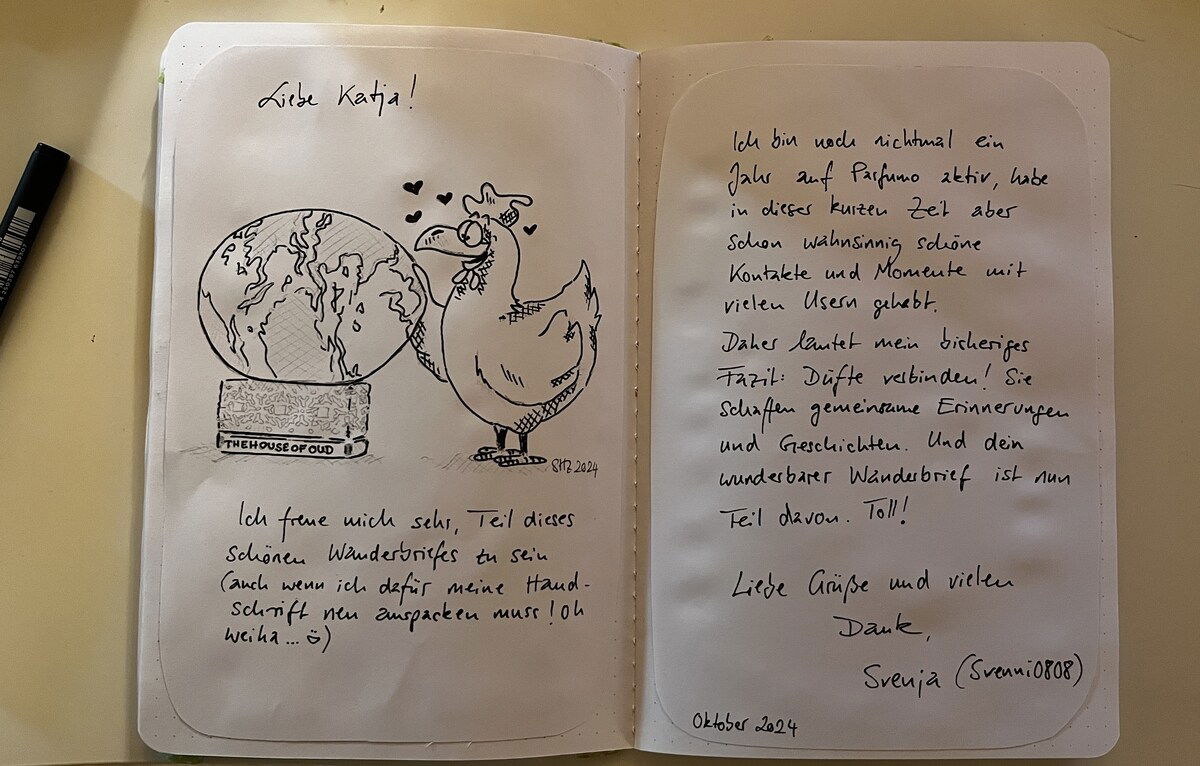 Liebe Katja!
THE HOUSE OF OUD
SHZ 2024
Ich freue mich sehr, Teil dieses
schönen Wanderbriefes zu sein
(auch wenn ich dafür meine Hand-
schrift neu auspacken muss! Oh
weiha... ü)
Ich bin noch nichtmal ein
Jahr auf Parfumo aktiv, habe
in dieser kurzen Zeit aber
schon wahnsinnig schöne
Kontakte und Momente mit
vielen Usern gehabt.
Daher lautet mein bisheriges
Fazit: Düfte verbinden! Sie
schaffen gemeinsame Erinnerungen
und Geschichten. Und dein
wunderbarer Wanderbrief ist nun
Teil davon. Toll!
Liebe Grüße und vielen
Dank,
Svenja (Svenni0808)
Oktober 2024